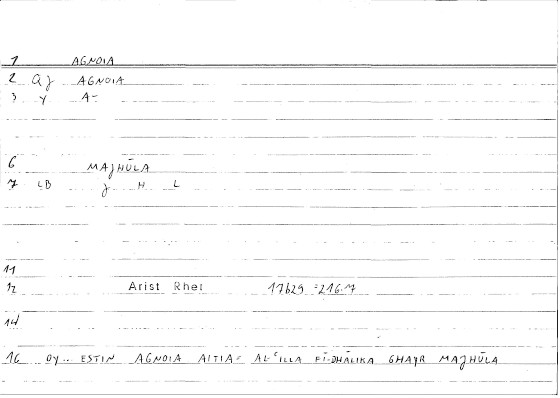 1 AGNOIA
2 Qj AGNOIA
3 γ A-
6 MAJHŪLA
7 LB J H L
11
12 Arist Rhet 17629 =216.7
14
16 OY.. ESTIN AGNOIA AITIA= AL-ʿILLA FĪ-DHĀLIKA GHAYR MAJHŪLA